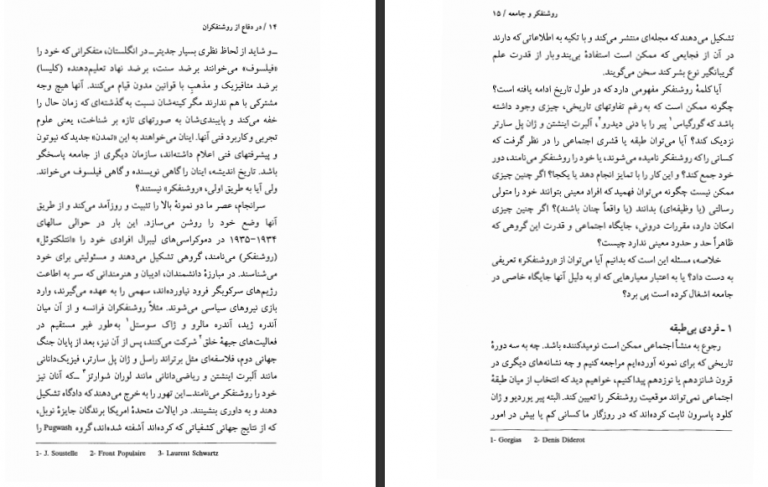 ۱۴ / در دفاع از روشنفکران
ـ و شاید از لحاظ نظری بسیار جدیتر ـ در انگلستان، متفکرانی که خود را
«فیلسوف» می‌خوانند برضد سنت، برضد نهاد تعلیم‌دهنده (کلیسا)
برضد متافیزیک و مذهب با قوانین مدون قیام می‌کنند. آنها هیچ وجه
مشترکی با هم ندارند مگر کینه‌شان نسبت به گذشته‌ای که زمان حال را
خفه می‌کند و پایبندی‌شان به صورتهای تازه بر شناخت، یعنی علوم
تجربی و کاربرد فنی آنها. اینان می‌خواهند به این «تمدن» جدید که نیوتون
و پیشرفتهای فنی اعلام داشته‌اند، سازمان دیگری از جامعه پاسخگو
باشد. تاریخ اندیشه، اینان را گاهی نویسنده و گاهی فیلسوف می‌خواند.
ولی آیا به طریق اولی، «روشنفکر» نیستند؟
سرانجام، عصر ما دو نمونهٔ بالا را تثبیت و روزآمد می‌کند و از طریق
آنها وضع خود را روشن می‌سازد. این بار در حوالی سالهای
۱۹۳۴-۱۹۳۵ در دموکراسی‌های لیبرال افرادی خود را «انتلکتوئل»
(روشنفکر) می‌نامند، گروهی تشکیل می‌دهند و مسئولیتی برای خود
می‌شناسند. در مبارزهٔ دانشمندان، ادیبان و هنرمندانی که سر به اطاعت
رژیم‌های سرکوبگر فرود نیاورده‌اند، سهمی را به عهده می‌گیرند، وارد
بازی نیروهای سیاسی می‌شوند. مثلاً روشنفکران فرانسه و از آن میان
آندره ژید، آندره مالرو و ژاک سوستل۱ به‌طور غیر مستقیم در
فعالیت‌های جبههٔ خلق۲ شرکت می‌کنند، پس از آن نیز، بعد از پایان جنگ
جهانی دوم، فلاسفه‌ای مثل برتراند راسل و ژان پل سارتر، فیزیک‌دانانی
مانند آلبرت اینشتن و ریاضی‌دانانی مانند لوران شوارتز۳ ـ که آنان نیز
خود را روشنفکر می‌نامند ـ این تهور را به خرج می‌دهند که دادگاه تشکیل
دهند و به داوری بنشینند. در ایالات متحدهٔ امریکا برندگان جایزهٔ نوبل،
که از نتایج جهانی کشفیاتی که کرده‌اند آشفته شده‌اند، گروه Pugwash را
1- J. Soustelle 2- Front Populaire 3- Laurent Schwartz
روشنفکر و جامعه / ۱۵
تشکیل می‌دهند که مجله‌ای منتشر می‌کند و با تکیه به اطلاعاتی که دارند
در آن از فجایعی که ممکن است استفادهٔ بی‌بندوبار از قدرت علم
گریبانگیر نوع بشر کند سخن می‌گویند.
آیا کلمهٔ روشنفکر مفهومی دارد که در طول تاریخ ادامه یافته است؟
چگونه ممکن است که به‌رغم تفاوتهای تاریخی، چیزی وجود داشته
باشد که گورگیاس۱ پیر را با دنی دیدرو۲، آلبرت اینشتن و ژان پل سارتر
نزدیک کند؟ آیا می‌توان طبقه یا قشری اجتماعی را در نظر گرفت که
کسانی را که روشنفکر نامیده می‌شوند، یا خود را روشنفکر می‌نامند، دور
خود جمع کند؟ و این کار را با تمایز انجام دهد یا یکجا؟ اگر چنین چیزی
ممکن نیست چگونه می‌توان فهمید که افراد معینی بتوانند خود را متولی
رسالتی (یا وظیفه‌ای) بدانند (یا واقعاً چنان باشند)؟ اگر چنین چیزی
امکان دارد، مقررات درونی، جایگاه اجتماعی و قدرت این گروهی که
ظاهراً حد و حدود معینی ندارد چیست؟
خلاصه، مسئله این است که بدانیم آیا می‌توان از «روشنفکر» تعریفی
به دست داد؟ یا به اعتبار معیارهایی که او به دلیل آنها جایگاه خاصی در
جامعه اشغال کرده است پی برد؟
۱ ـ فردی بی‌طبقه
رجوع به منشأ اجتماعی ممکن است نومیدکننده باشد. چه به سه دورهٔ
تاریخی که برای نمونه آورده‌ایم مراجعه کنیم و چه نشانه‌های دیگری در
قرن شانزدهم یا نوزدهم پیدا کنیم، خواهیم دید که انتخاب از میان طبقهٔ
اجتماعی نمی‌تواند موقعیت روشنفکر را تعیین کند. البته پیر بوردیو و ژان
کلود پاسرون ثابت کرده‌اند که در روزگار ما کسانی کم یا بیش در امور
1- Gorgias 2- Denis Diderot